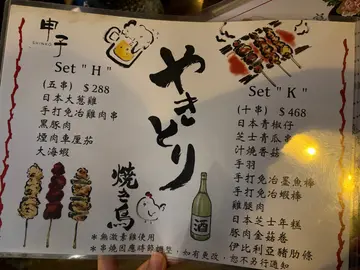 甲子
SHINKO
Set "H"
(五串) $288
日本大葱雞
手打免冶雞肉串
黑豚肉
煙肉車厘茄
大海蝦
やきとり
焼き鳥
酒
Set "K"
(十串) $468
日本青椒仔
芝士青瓜
汁燒香菇
手羽
手打免冶墨魚棒
手打免冶蝦棒
雞腿肉
日本芝士年糕
豚肉金菇卷
伊比利亞豬肋條
* 無激素雞使用
* 串燒因應時節調整,如有更改,恕不另行通知